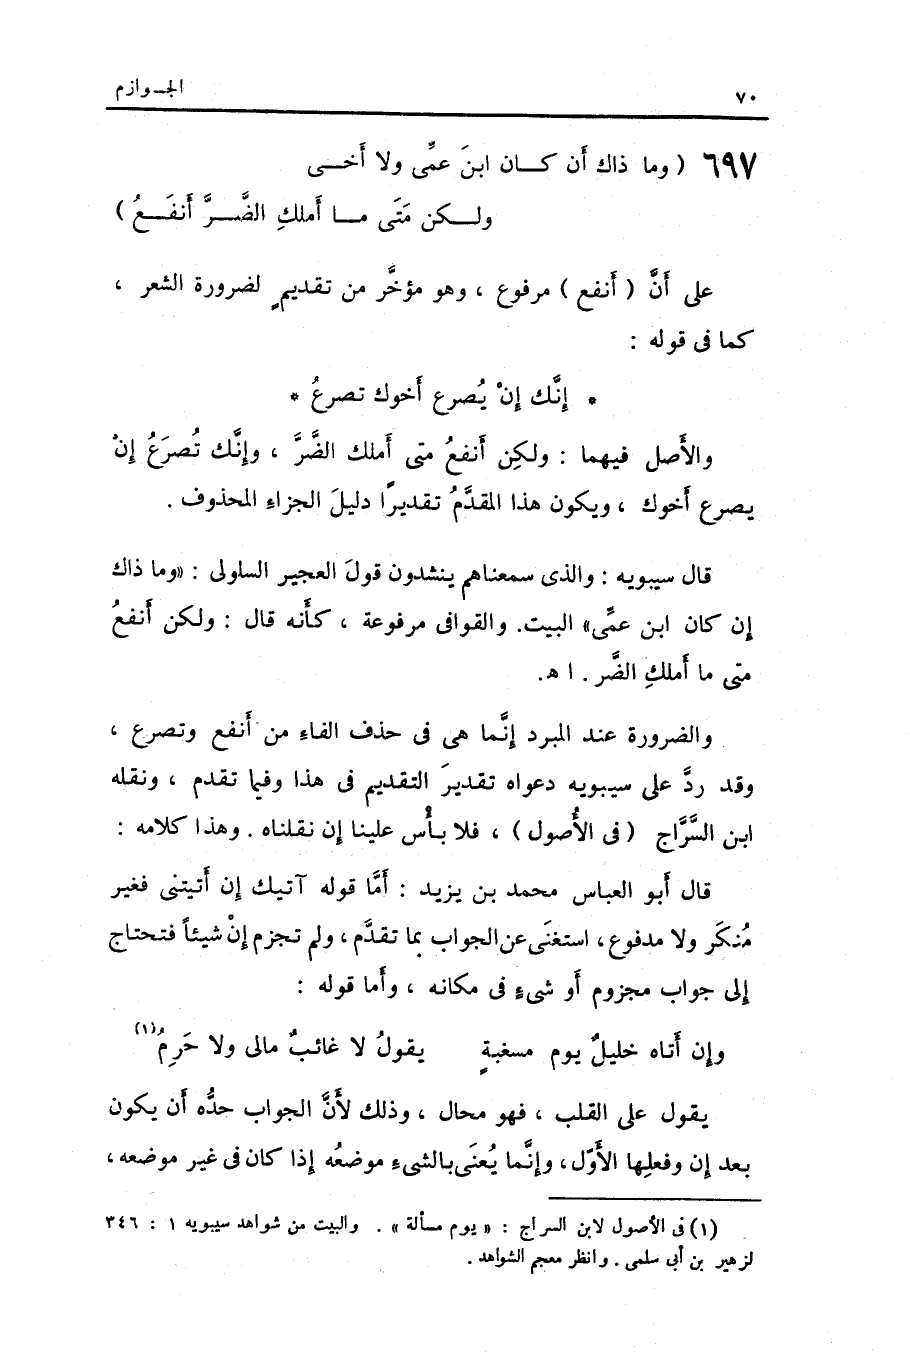 ٧٠ الجـوازم
٦٩٧ ( وما ذاك أَن كـــان ابنَ عمِّى ولا أَخـــى
ولـــكن مَتَى مـــا أَملكِ الضَّـــرَّ أَنفَـــعُ )
على أَنَّ ( أَنفع ) مرفوع ، وهو مؤخَّر من تقديمٍ لضرورة الشعر ،
كما فى قوله :
* إِنَّك إِنْ يُصرع أَخوك تصرعُ *
والأَصل فيهما : ولكِن أَنفعُ متى أَملك الضَّرَّ ، وإِنَّك تُصرَعُ إِنْ
يصرع أَخوك ، ويكون هذا المقدَّمُ تقديرًا دليلَ الجزاء المحذوف .
قال سيبويه : والذى سمعناهم ينشدون قولَ العجير السلولى : «وما ذاك
إِن كان ابن عمِّى» البيت. والقوافى مرفوعة ، كأَنه قال : ولكن أَنفعُ
متى ما أَملكِ الضَّر . ا هـ.
والضرورة عند المبرد إِنَّما هى فى حذف الفاء من أَنفع وتصرع ،
وقد ردَّ على سيبويه دعواه تقديرَ التقديم فى هذا وفيما تقدم ، ونقله
ابن السَّرَّاج ( فى الأُصول ) ، فلا بأْس علينا إن نقلناه . وهذا كلامه :
قال أَبو العباس محمد بن يزيد : أَمَّا قوله آتيك إن أَتيتنى فغير
مُنكَر ولا مدفوع، استغنَى عن الجواب بما تقدَّم ، ولم تجزم إِنْ شيئاً فتحتاج
إِلى جواب مجزوم أَو شىءٍ فى مكانه ، وأَما قوله :
وإِن أَتاه خليلٌ يوم مسغبةٍ يقولُ لا غائبٌ مالى ولا حَرِمُ(١)
يقول على القلب ، فهو محال ، وذلك لأَنَّ الجواب حدُّه أَن يكون
بعد إن وفعلِها الأَوّل، وإِنَّما يُعنَى بالشىءِ موضعُه إِذا كان فى غير موضعه،
(١) فى الأصول لابن السراج : « يوم مسألة » . والبيت من شواهد سيبويه ١ : ٣٤٦
لزهير بن أبى سلمى . وانظر معجم الشواهد .